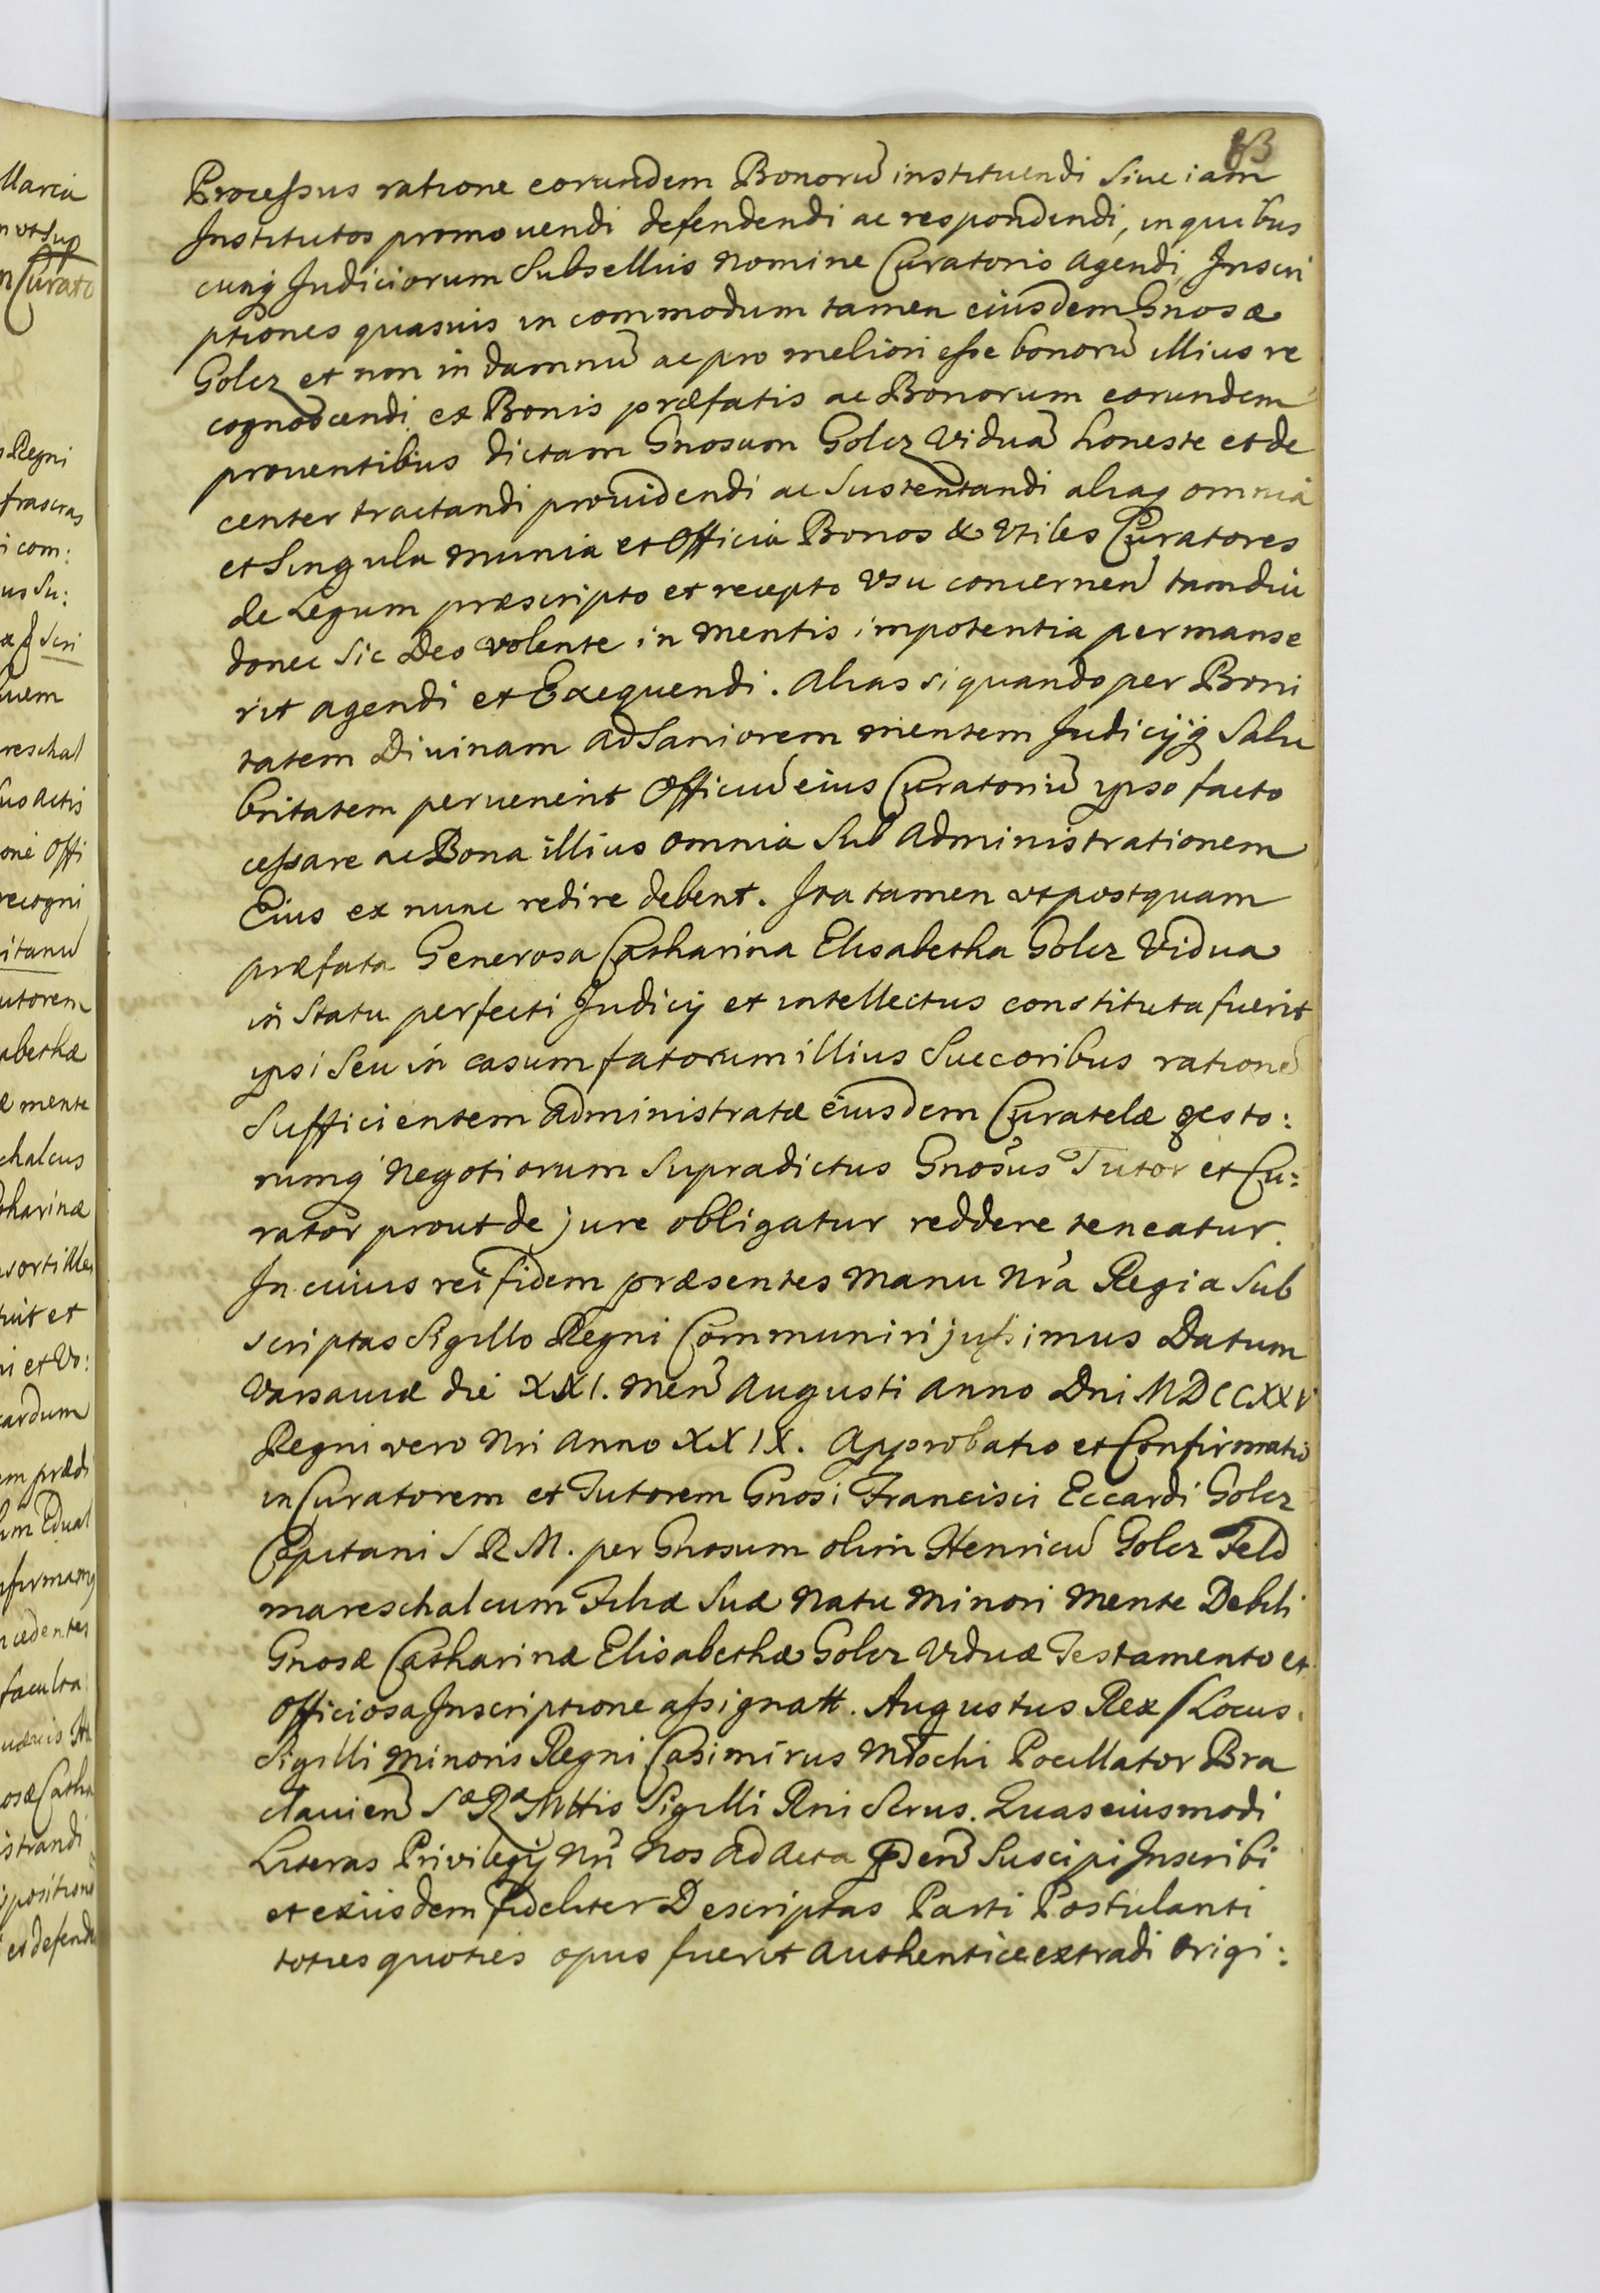 Processus ratione eorundem Bonorũ instituendi Siue iam
Institutos promouendi defendendi ac respondendi, in quibus
cunq Judiciorum Subsellijs Nomine Curatorio Agendi Inscri
ptiones quasuis in commodum tamen eiusdem Gnosæ
Golcz et non in damnũ ac pro meliori esse bonorũ illius re
cognoscendi ex Bonis præfatis ac Bonorum eorundem
prouentibus dictam Gnosam Golcz Viduã honeste et de
center tractandi prouidendi ac Sustentandi aliaq omnia
et Singula munia et Officia Bonos & Vtiles Curatores
de Legum præscripto et recepto Vsu concernen̄ tamdiu
donec Sic Deo volente in Mentis impotentia permanse
rit agendi et Exequendi. Alias si quando per Boni
tatem Diuinam ad Saniorem mentem Judicijq Salu
britatem peruenerit Officiũ eius Curatoriũ ipso facto
cessare ac Bona illius omnia Sub Administrationem
Eius ex nunc redire debent. Ita tamen vt postquam
præfata Generosa Catharina Elisabetha Golcz Vidua
in Statu perfecti Judicij et intellectus constituta fuerit
ipsi Seu in casum fatorum illius Succoribus rationē
Sufficientem Administratæ eiusdem Curatelæ gesto:
rumq Negotiorum Supradictus Gnosus Tutor et Cu:
rator prout de jure obligatur reddere teneatur.
In cuius rei fidem præsentes Manu Nrã Regia Sub
scriptas Sigillo Regni Communiri jussimus Datum
Varsauiæ die XXI. Men̄ Augusti Anno Dni MDCCXXV
Regni vero Nri Anno XXIX. Approbatio et Confirmatio
in Curatorem et Tutorem Gnosi Francisci Eccardi Golcz
Capitani S R M. per Gnosum olim Henricũ Golcz Feld
mareschalcum Filiæ Suæ Natu Minori Mente Debili
Gnosæ Catharinæ Elisabethæ Golcz Viduæ Testamento et
Officiosa Inscriptione assignatt. Augustus Rex / Locus
Sigilli Minoris Regni Casimirus Młochi Pocillator Bra
clauien̄ Sæ Ræ Mttis Sigilli Rni Scrus. Quas eiusmodi
Literas Privilegij Nri Nos ad Acta Suscipi Inscribi
et exiisdem fideliter Descriptas Parti Postulanti
toties quoties opus fuerit Authentice extradi Origi: